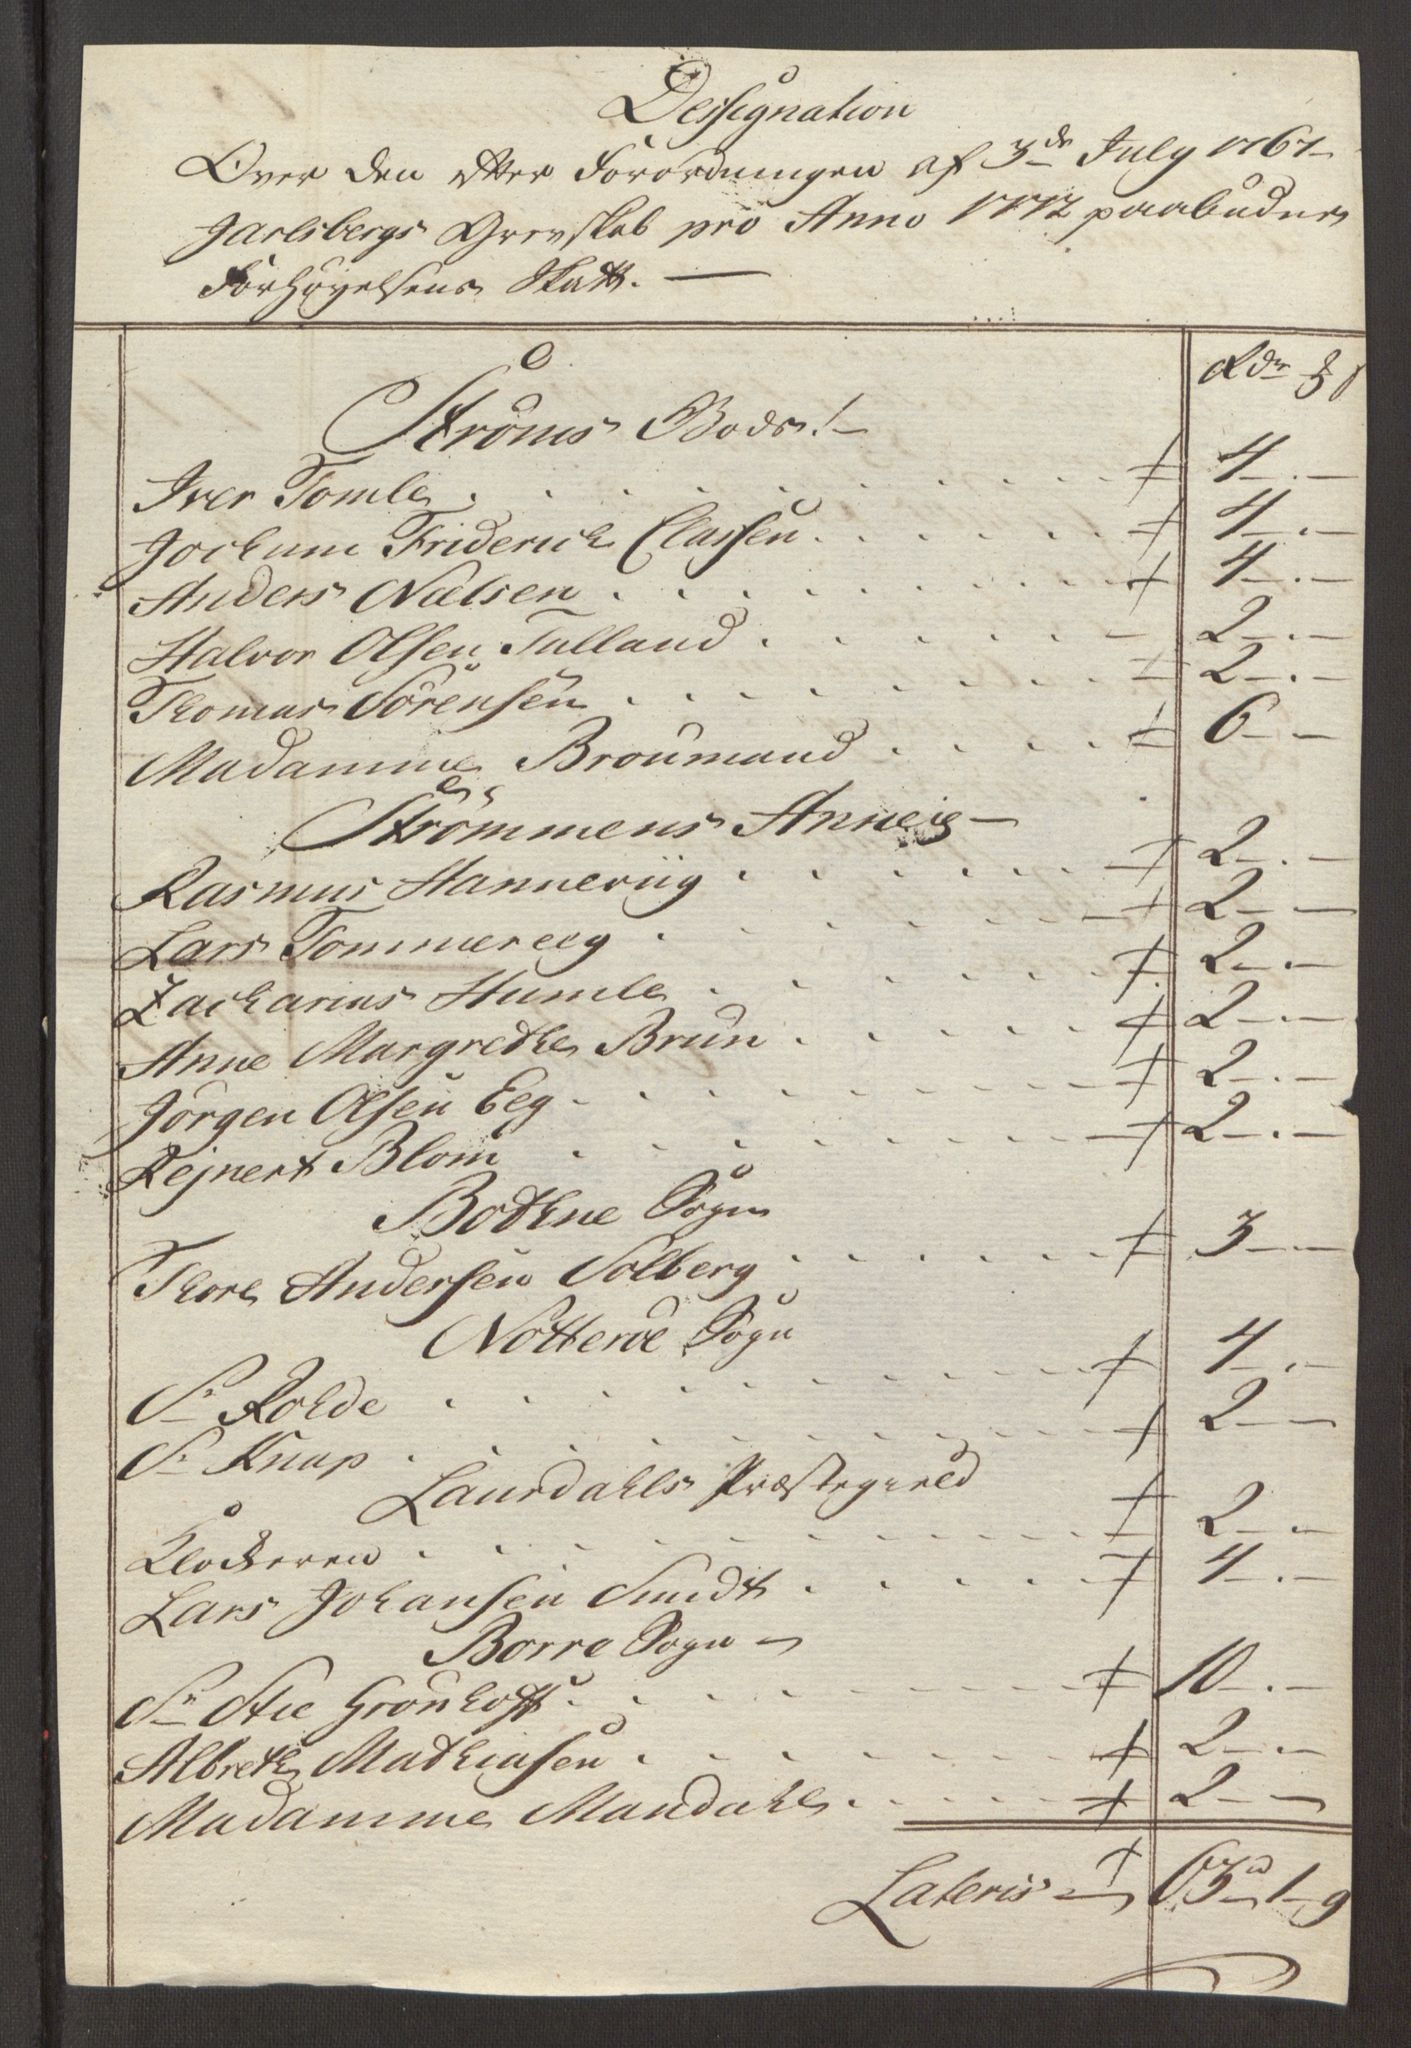 Dessignation
Over den efter Forordningen af 3de July 1767
Jarlsbergs Grevskab pro Anno 1772 paabudne
Forhøyelsens Skatt. —
Rdr
Strøms Bode! —
Iver Tomle . . . 4 — . —
Jochum Friderich Classen . . . 4 — . —
Anders Nielsen . . . 4 — . —
Halvor Olsen Tulland . . . 2 — . —
Thomas Sørensen . . . 2 — . —
Madamme Broumand . . . 6 — —
Strømmens Annex —
Rasmus Hanneviig . . . 2 — . —
Lars Tommereeg . . . 2 — —
Zacharius Humle . . . 2 — . —
Anne Margrethe Brun . . . 2 — . —
Jørgen Olsen Eeg . . . 2 — . —
Rejnert Blom . . . 2 — . —
Bothne Sogn
Thore Andersen Solberg . . . 3 — —
Nøtterøe Sogn
Sr Rohde . . . 4 — . —
Sr Knap . . . 2 — —
Laurdahls Præstegield
Klockeren . . . 2 — . —
Lars Johansen Smidt . . . 4 — . —
Borre Sogn —
Sr Stie Grønhoff . . . 10 — . —
Albreth Mathiasen . . . 2 — . —
Madamme Mandahl . . . 2 — —
Lateris — 63 — 1 — 9